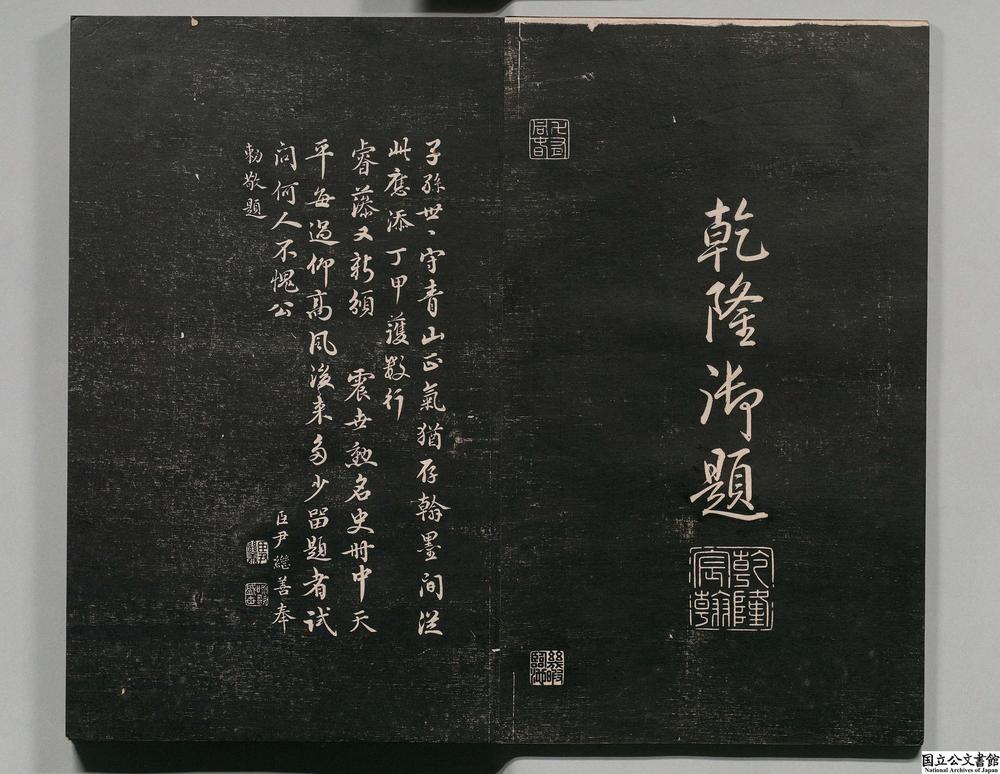 乾隆御題
乾隆宸翰
子孫世〻守青山正氣猶存翰墨間從
此應添丁甲護數行
睿藻又新頒　震世勲名史冊中天
平每過仰高風後來多少留題者試
問何人不愧公
臣尹繼善奉
勅敬題
国立公文書館
National Archives of Japan